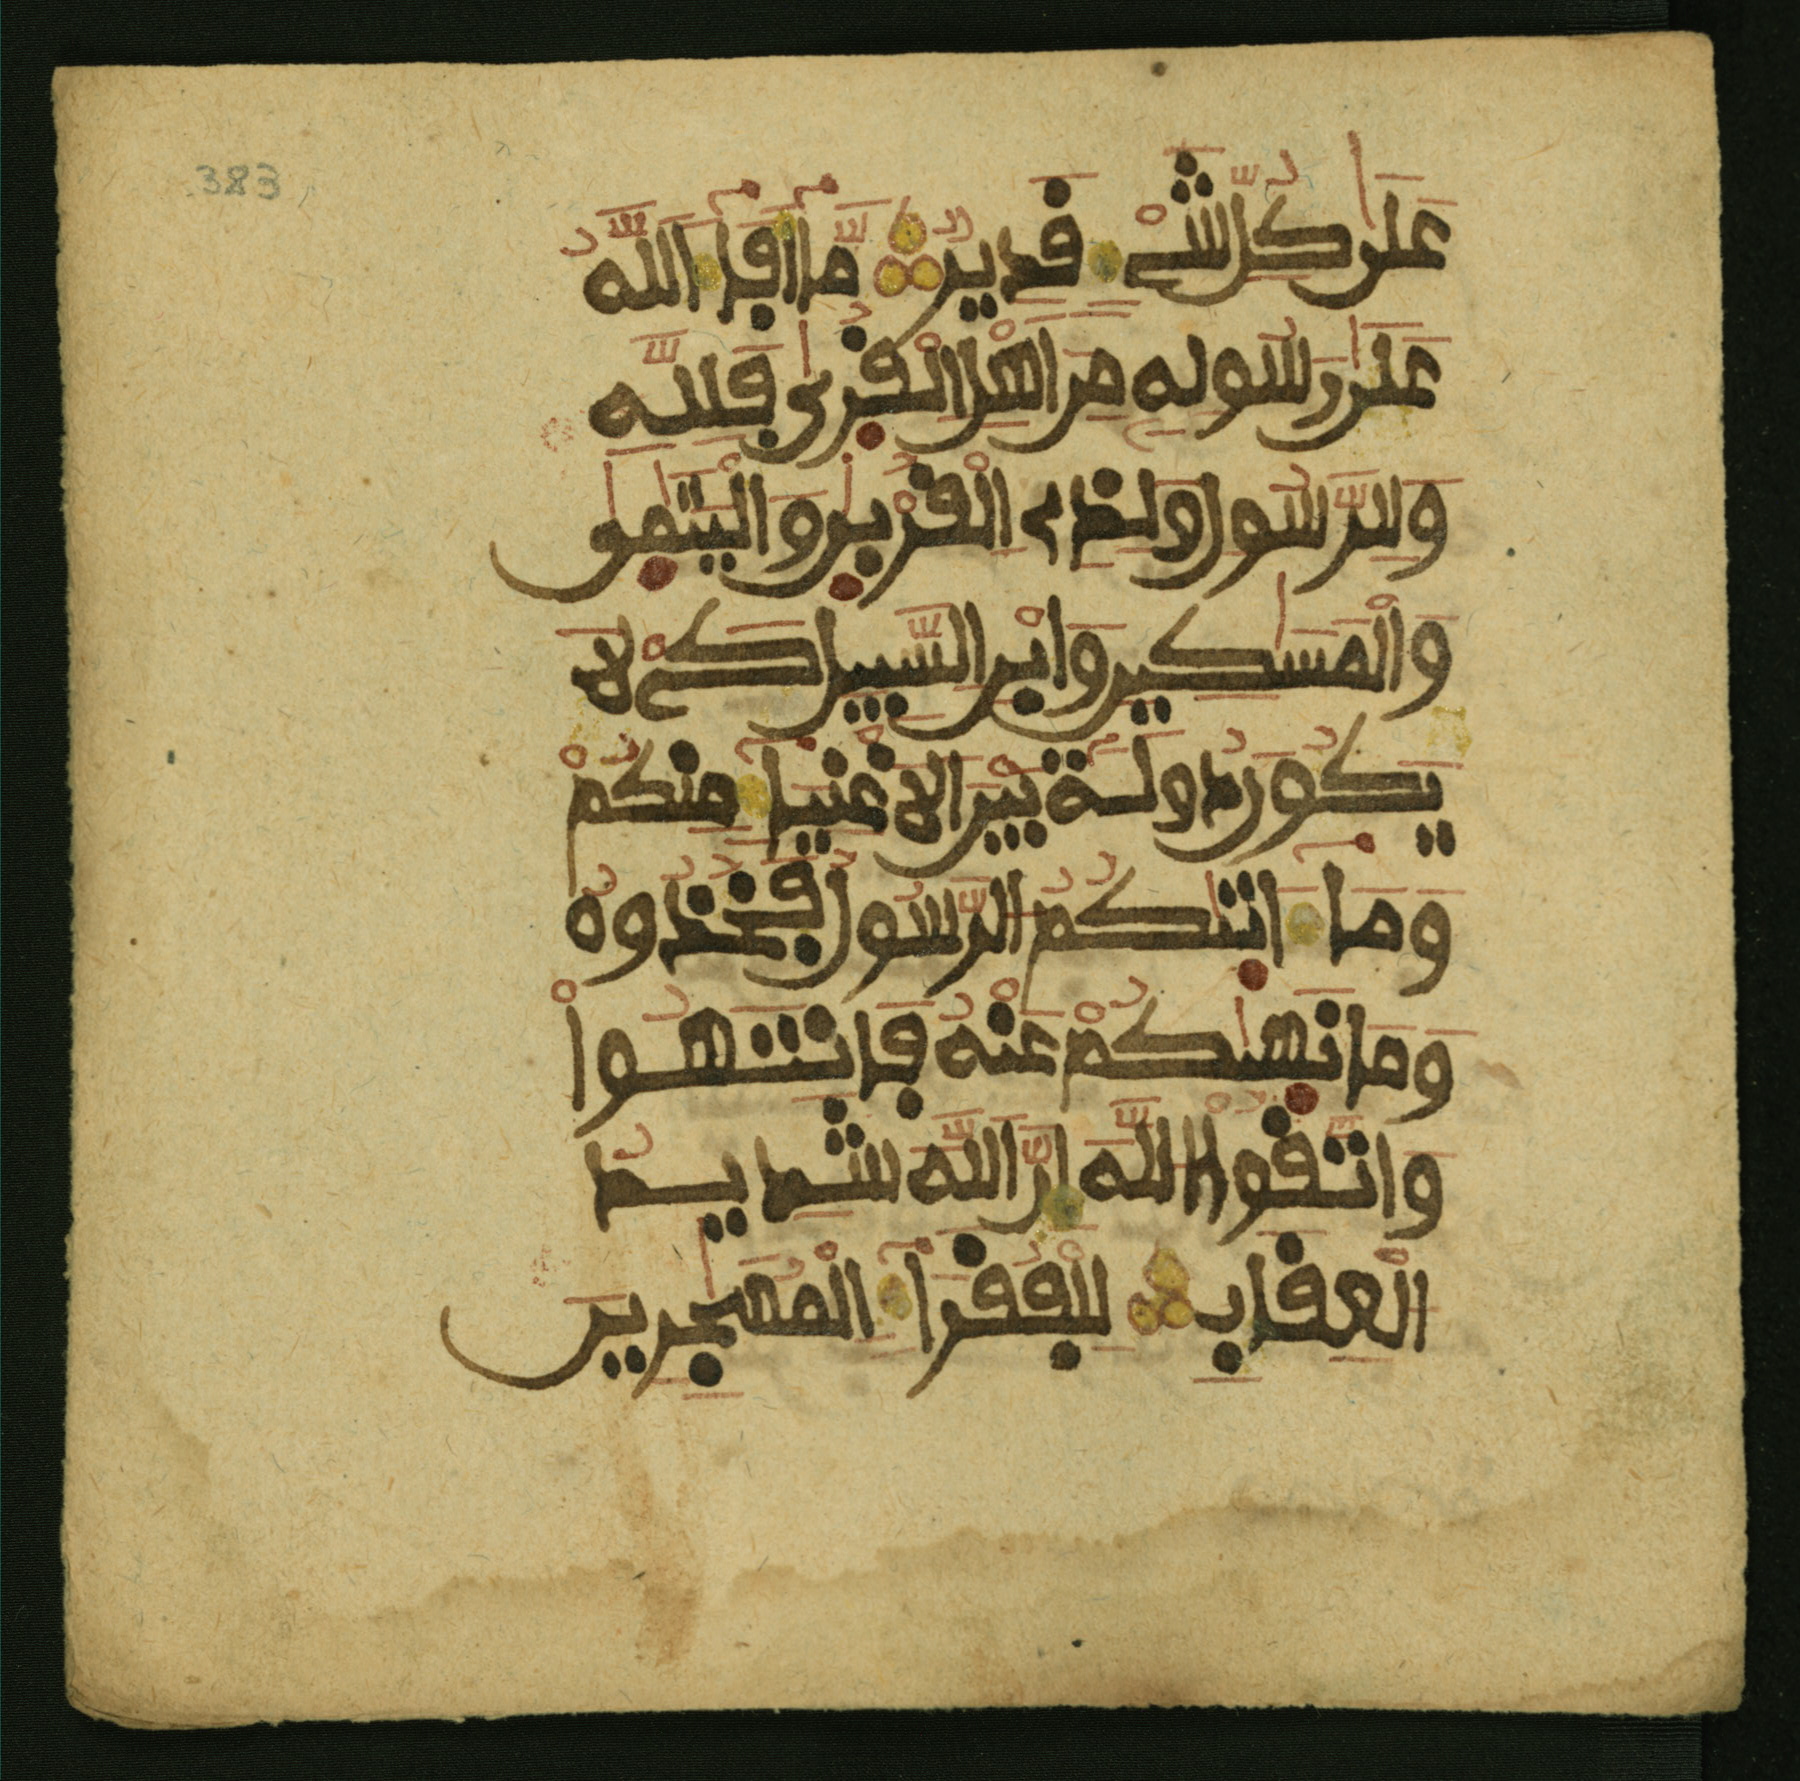 383
عَلَىٰ كُلِّ شَےْءٖ قَدِيرٌ مَّآ أَفَآءَ اَللَّهُ
عَلَىٰ رَسُولِهِ مِنَ اَهْلِ اِلْقُرىٰ فَلِلَّهِ
وَلِلرَّسُولِ وَلِذِى اِلْقُرْبىٰ وَالْيَتَٰمىٰ
وَالْمَسَٰكِينِ وَابْنِ اِلسَّبِيلِ كَےْ لَا
يَكُونَ دُولَةَۢ بَيْنَ اَلَاغْنِيَآءِ مِنكُمْ
وَمَآ ءَاتيٰكُمُ اُلرَّسُولُ فَخُذُوهُ
وَمَا نَهيٰكُمْ عَنْهُ فَانتَهُواْ
وَاتَّقُواْ اُللَّهَ إِنَّ اَللَّهَ شَدِيدُ
اُلْعِقَابِ لِلْفُقَرَآءِ اِلْمُهَٰجِرِينَ